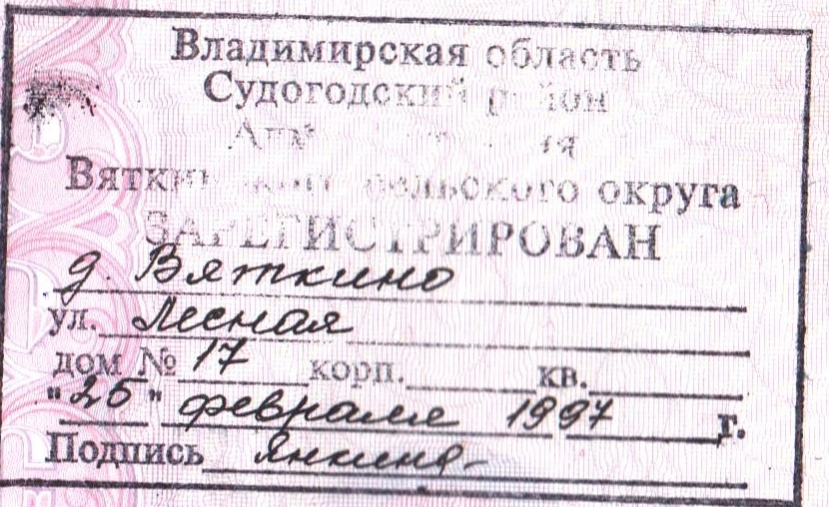 Владимирская область
Судогодский район
сельского округа
ЗАРЕГИСТРИРОВАН
д. Вяткино
ул. Лесная
дом № 17 корп. кв.
"25" февраля 1997 г.
Подпись